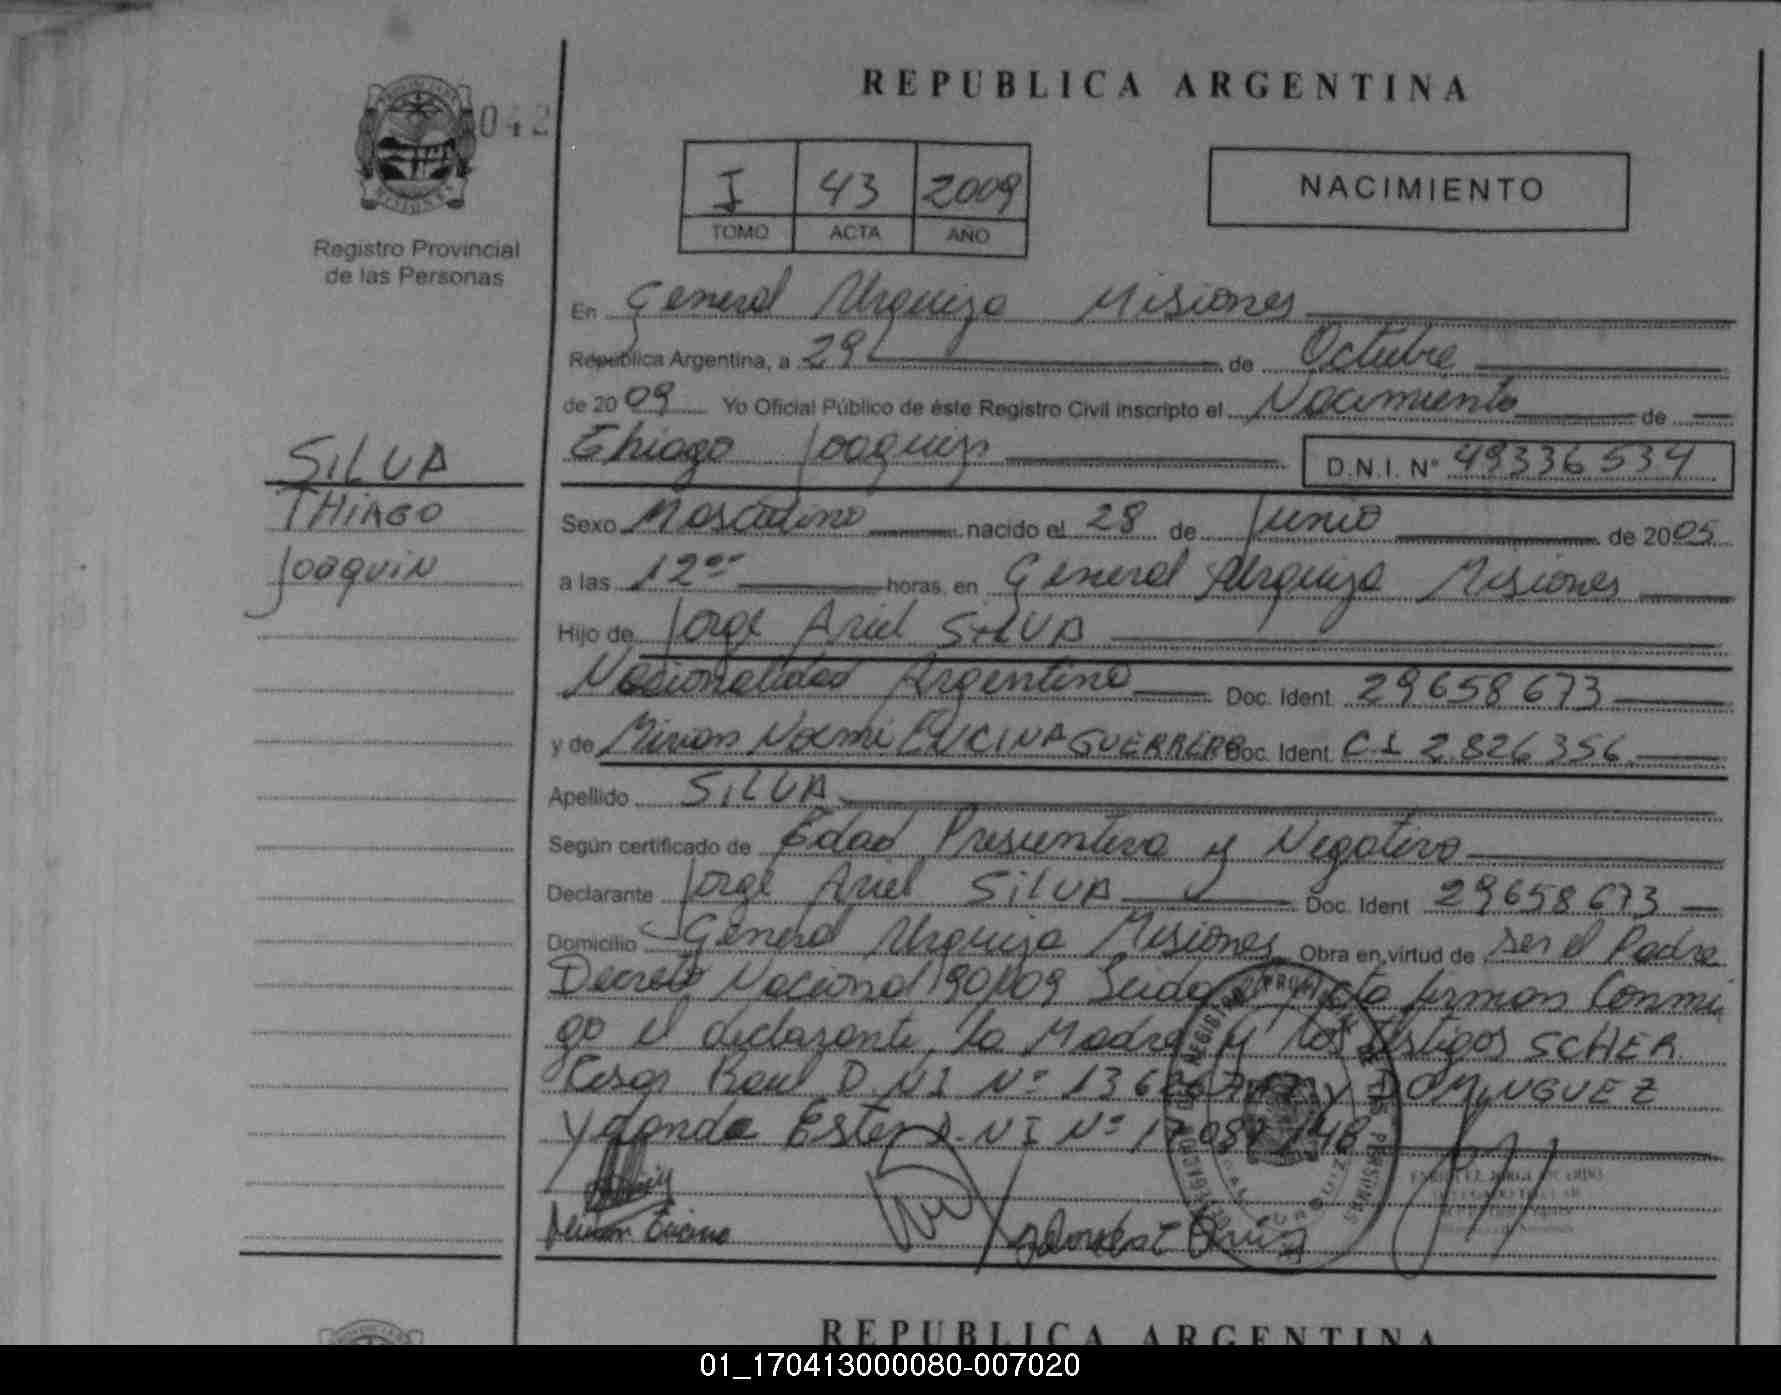 REPUBLICA ARGENTINA
042
I 43 2009
TOMO ACTA AÑO
NACIMIENTO
Registro Provincial
de las Personas
SILVA
THIAGO
Joaquin
En General Urquiza Misiones
República Argentina, a 29 de Octubre
de 2009 Yo Oficial Público de éste Registro Civil inscripto el Nacimiento de
Thiago Joaquin D.N.I. N° 49336534
Sexo Masculino nacido el 28 de Junio de 2005
a las 12 horas, en General Urquiza Misiones
Hijo de Jorge Ariel SILVA
Nacionalidad Argentina Doc. Ident. 29658673
y de Mirian Noemi ENCINA GUERRERO Doc. Ident. C.I 2.826356
Apellido SILVA
Según certificado de Edad Presuntiva y Negativo
Declarante Jorge Ariel SILVA Doc. Ident 29658673
Domicilio General Urquiza Misiones Obra en virtud de ser el Padre
Decreto Nacional 90/09 Leida el Acta firman Conmi
go el declarante, la Madre y los testigos SCHER
Cesar Raul D.N.I N° y DOMINGUEZ
Ydonda Ester D.N I N°
Mirian Encina
REPUBLICA ARGENTINA
01_170413000080-007020